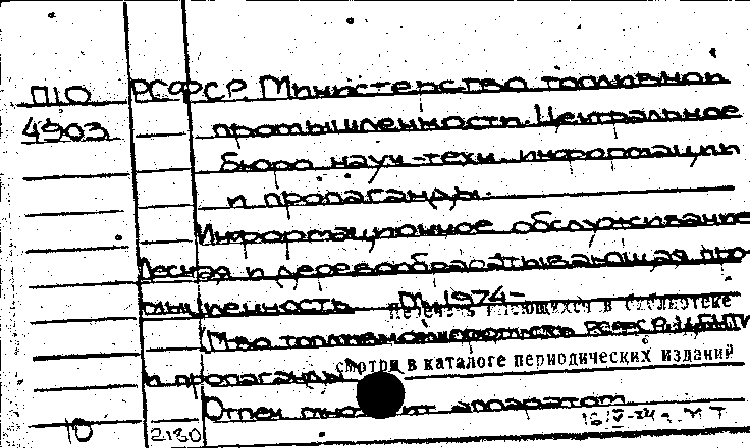 П10
4903
РСФСР. Министерство топливной
промышленности. Центральное
бюро науч.-техн. информации
и пропаганды.
Информационное обслуживание
Лесная и деревообрабатывающая про-
мышленность М., 1974-
Перечень имеющихся в библиотеке
(М-во топливной промышленности РСФСР. ЦБНТИ
смотри в каталоге периодических изданий
и пропаганды
Отпеч. аппаратом
10 2180